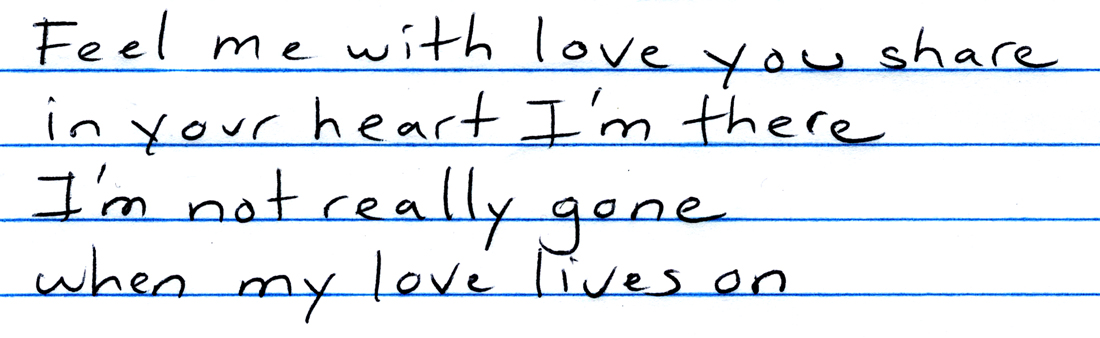 Feel me with love you share
in your heart I'm there
I'm not really gone
when my love lives on